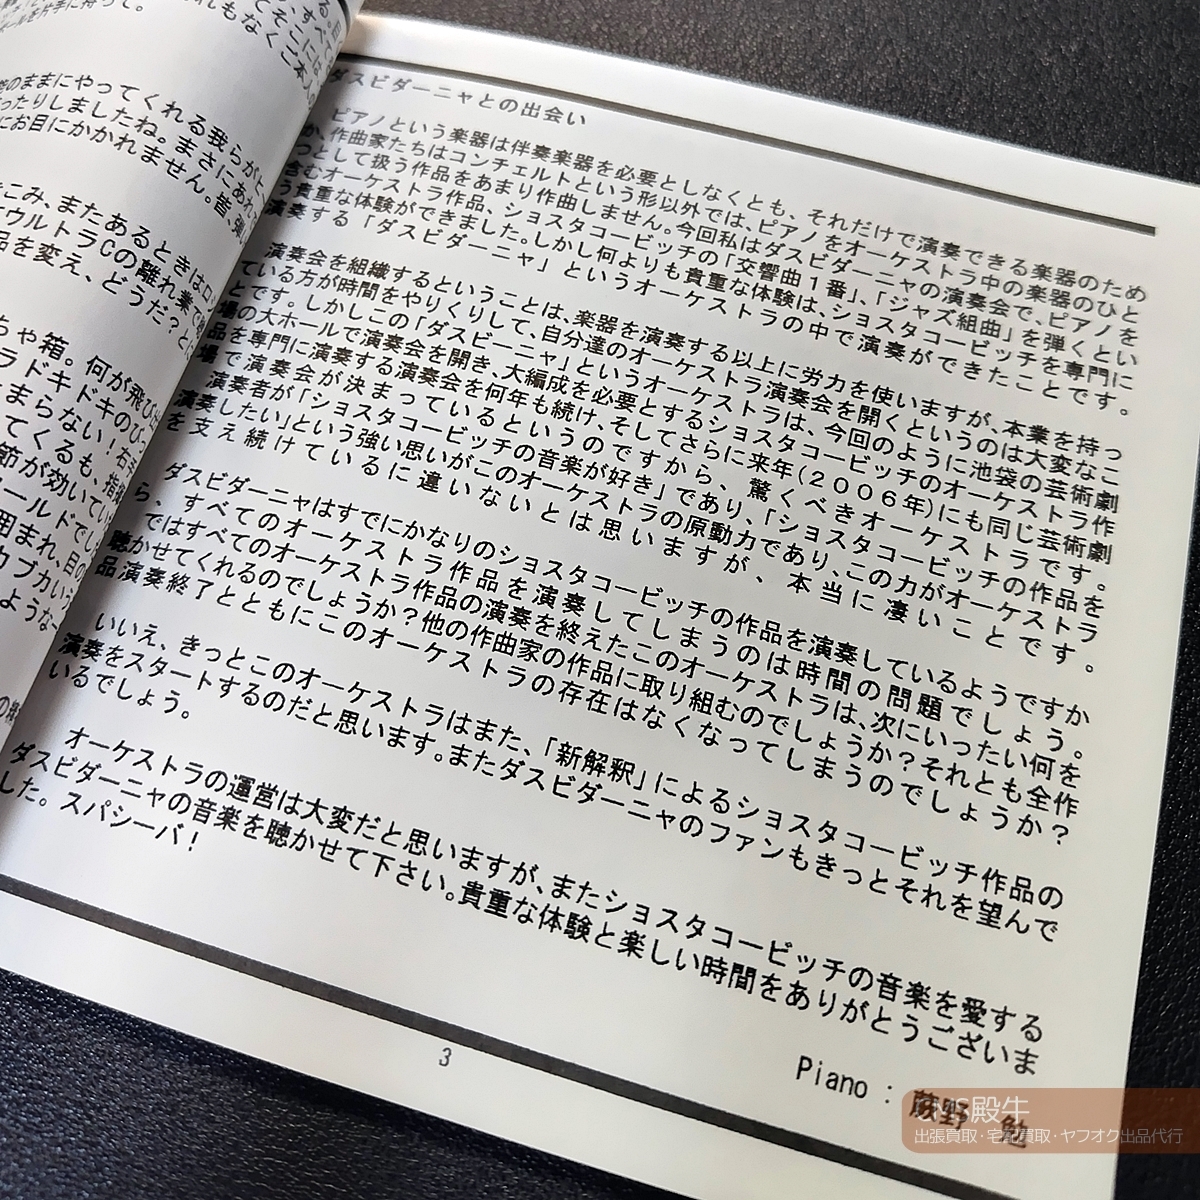 る。
すべて
てそこには
れもなくご本人
ールを片手に持って。
のままにやってくれる我らがヒ
ったりしましたね。まさにあれ
にお目にかかれません。皆、弾
こみ、またあるときはロ
ウルトラCの離れ業で
品を変え、どうだ?と
ちゃ箱。何が飛び出
ラドキドキのひ
まらない!右手
てくるも、指揮
節が効いてい
ールドでし
囲まれ、目の
カブカいう
ような
ダスビダーニャとの出会い
ピアノという楽器は伴奏楽器を必要としなくとも、それだけで演奏できる楽器のため
か、作曲家たちはコンチェルトという形以外では、ピアノをオーケストラ中の楽器のひと
つとして扱う作品をあまり作曲しません。今回私はダスビダーニャの演奏会で、ピアノを
含むオーケストラ作品、ショスタコービッチの「交響曲1番」、「ジャズ組曲」を弾くとい
う貴重な体験ができました。しかし何よりも貴重な体験は、ショスタコービッチを専門に
演奏する「ダスビダーニャ」というオーケストラの中で演奏ができたことです。
演奏会を組織するということは、楽器を演奏する以上に労力を使いますが、本業を持っ
ている方が時間をやりくりして、自分達のオーケストラ演奏会を開くというのは大変なこ
とです。しかしこの「ダスビーニャ」というオーケストラは、今回のように池袋の芸術劇
場の大ホールで演奏会を開き、大編成を必要とするショスタコービッチのオーケストラ作
品を専門に演奏する演奏会を何年も続け、そしてさらに来年(2006年)にも同じ芸術劇
場で演奏会が決まっているというのですから、驚くべきオーケストラです。
演奏者が「ショスタコービッチの音楽が好き」であり、「ショスタコービッチの作品を
演奏したい」という強い思いがこのオーケストラの原動力であり、この力がオーケストラ
を支え続けているに違いないとは思いますが、本当に凄いことです。
ダスビダーニャはすでにかなりのショスタコービッチの作品を演奏しているようですか
ら、すべてのオーケストラ作品を演奏してしまうのは時間の問題でしょう。
ではすべてのオーケストラ作品の演奏を終えたこのオーケストラは、次にいったい何を
聴かせてくれるのでしょうか?他の作曲家の作品に取り組むのでしょうか?それとも全作
品演奏終了とともにこのオーケストラの存在はなくなってしまうのでしょうか?
いいえ、きっとこのオーケストラはまた、「新解釈」によるショスタコービッチ作品の
演奏をスタートするのだと思います。またダスビダーニャのファンもきっとそれを望んで
いるでしょう。
オーケストラの運営は大変だと思いますが、またショスタコービッチの音楽を愛する
ダスビダーニャの音楽を聴かせて下さい。貴重な体験と楽しい時間をありがとうございま
した。スパシーバ!
Piano : 蕨野 勉
3
殿牛
出張買取・宅配買取・ヤフオク出品代行